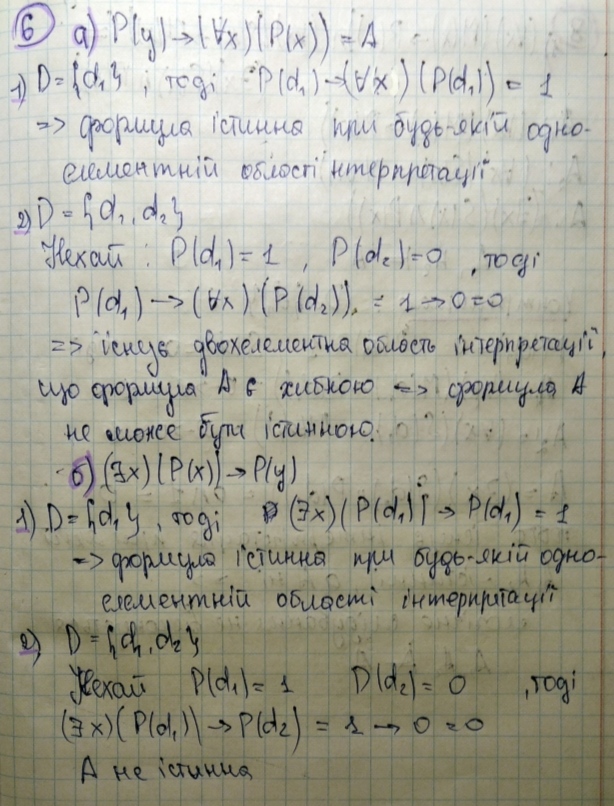 6 а) P(y)→(∀x)(P(x)) = A
1) D={d₁}, тоді P(d₁)→(∀x)(P(d₁)) = 1
=> формула істинна при будь-якій одно-
елементній області нтерпретації
2) D = {d₁, d₂}
Нехай: P(d₁)=1, P(d₂)=0, тоді
P(d₁)→(∀x)(P(d₂)) = 1→0=0
=> існує двохелементна область інтерпретації,
що формула A є хибною <=> формула A
не може бути істинною.
б) (∃x)(P(x))→P(y)
1) D={d₁}, тоді (∃x)(P(d₁))→P(d₁)=1
=> формула істинна при будь-якій одно-
елементній області інтерпретації
2) D={d₁, d₂}
Нехай P(d₁)=1 D(d₂)=0, тоді
(∃x)(P(d₁))→P(d₂) = 1→0=0
A не істинна